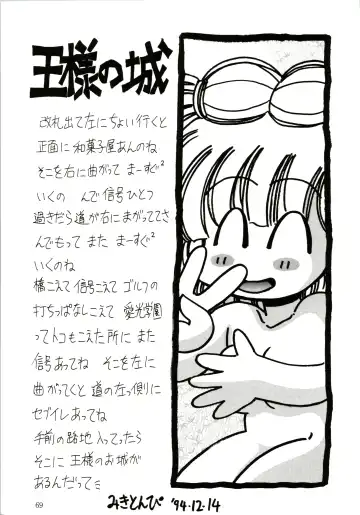 王様の城
改札出て左にちょい行くと
正面に和菓子屋あんのね
そこを右に曲がって まーすぐ²
いくの んで信号ひとつ
過ぎたら道が右にまがっててさ
んでもって また まーすぐ²
いくのね
橋こえて信号こえて ゴルフの
打ちっぱなしこえて 愛光学園
ってトコもこえた所に また
信号あってね そこを左に
曲がってくと 道の左っ側に
セブイレあってね
手前の路地 入ってったら
そこに 王様のお城が
あるんだって
みきとんぴ '94.12.14
69